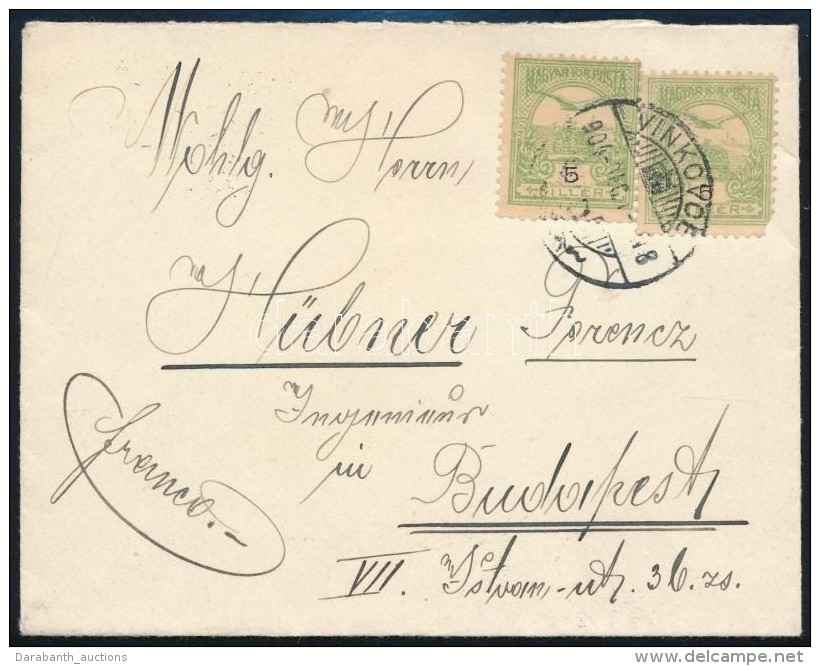 MAGYAR KIR. POSTA MAGYAR KIR. POSTA
5 FILLÉR 5
VINKOVCE
Wohlg. Herrn
Hübner Ferencz
Ingenieur
in
Budapest
VII. István-út. 36. zs.
franco.-
darabanth
Darabanth_auctions
www.delcampe.net